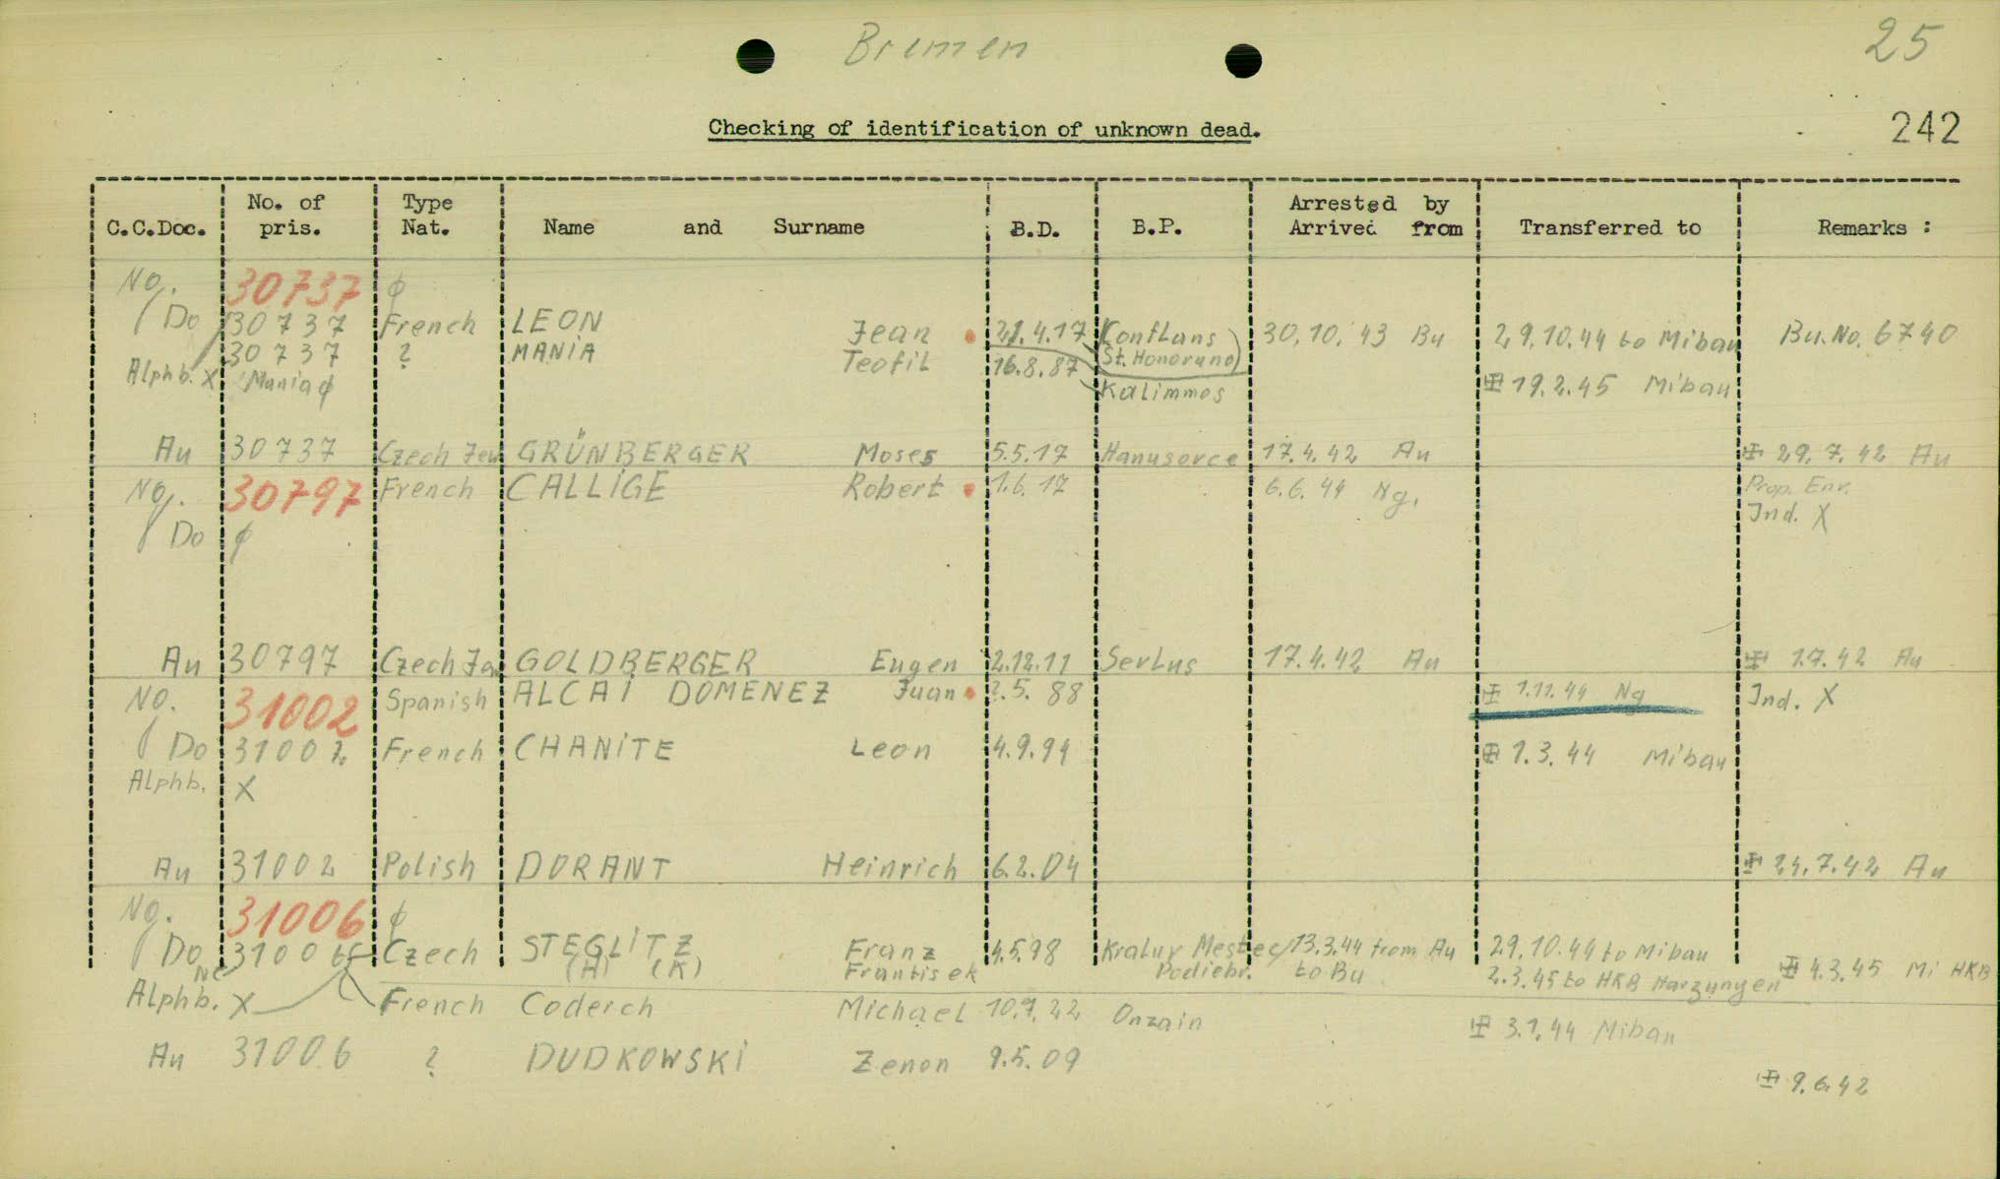 Bremen
25
Checking of identification of unknown dead.
242
C.C.Doc. No. of pris. Type Nat. Name and Surname B.D. B.P. Arrested by Arrived from Transferred to Remarks :
No. 30737 ϕ
Do 30737 French LEON Jean 21.4.17 Conflans St. Honorund 30.10.43 Bu 29.10.44 to Mibau Bu.No. 6740
30737 ? MANiA Teofil 16.8.87 Kalimmos 卐 19.2.45 Mibau
Alphb. X Mania ϕ
Au 30737 Czech Jew GRÜNBERGER Moses 5.5.17 Hanusovce 17.4.42 Au 卐 29.7.42 Au
Ng. 30797 French CALLiGE Robert 1.6.17 6.6.44 Ng. Prop. Env.
Ind. X
Do ϕ
Au 30797 Czech GOLDBERGER Eugen 2.12.11 Serlus 17.4.42 Au 1.7.42 Au
No. 31002 Spanish ALCAi DOMENEZ Juan 2.5.88 1.11.44 Ng Ind. X
Do 31002 French CHANiTE Leon 4.9.94 1.3.44 Mibau
Alphb. X
Au 31002 Polish DORANT Heinrich 6.2.04 24.7.42 Au
No. 31006 ϕ
Do 31006 Czech STEGLiTZ Franz 4.5.98 Kraluv Mestec 13.3.44 from Au 29.10.44 to Mibau
(H) (K) Frantisek Podiebr. to Bu 2.3.45 to HKB Harzungen 4.3.45 Mi HKB
Alphb. X French Coderch Michael 10.9.22 Onzain 3.1.44 Mibau
Au 31006 ? DUDKOWSKi Zenon 9.5.09 9.6.42